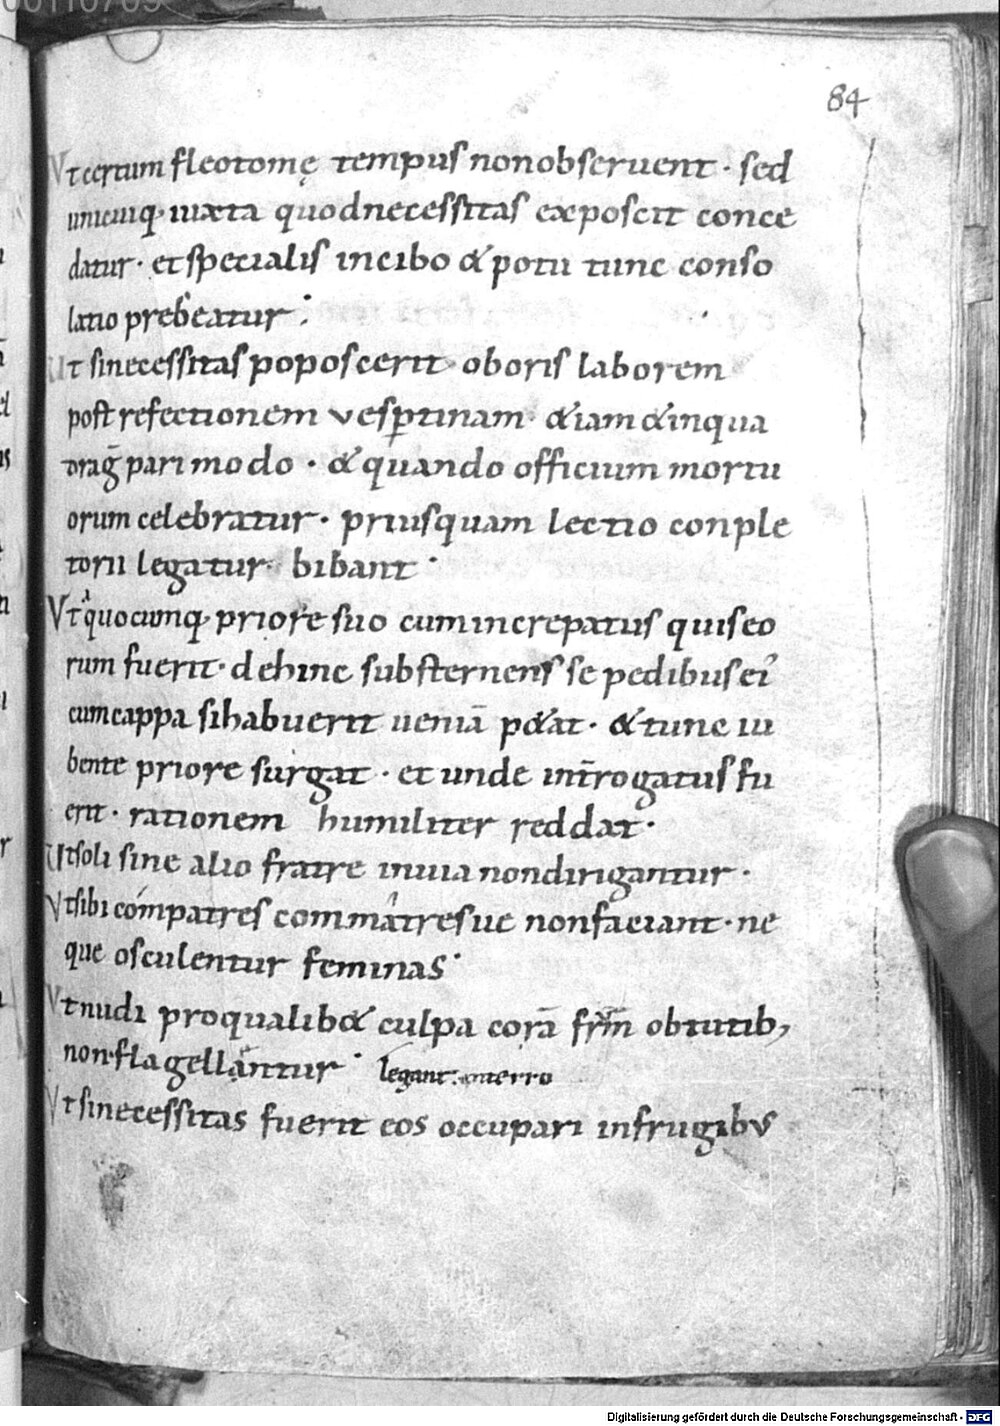 84
Ut certum fleotomę tempus non observent · sed
unicuiq· iuxta quod necessitas exposcit conce
datur · et specialis in cibo & potu tunc conso
latio prebeatur :
Ut si necessitas poposcerit oboris laborem
post refectionem vesptinam · &iam & in qua
drag̅ pari modo · & quando officium mortu
orum celebratur · priusquam lectio conple
torii legatur bibant ·
Ut quocumq· priore suo cum increpatus quis eo
rum fuerit · dehinc substernens se pedibus ei'
cum cappa si habuerit ueniā p&at · & tunc iu
bente priore surgat · et unde int̅rogatus fu
erit · rationem humiliter reddat ·
Ut soli sine alio fratre in uia non dirigantur ·
Ut sibi compatres commatres ue non faciant · ne
que osculentur feminas ·
Ut nudi pro qualib& culpa corā fr̅m obtutib;
non flagellantur · legant
Ut si necessitas fuerit eos occupari in frugibus
Digitalisierung gefördert durch die Deutsche Forschungsgemeinschaft - DFG